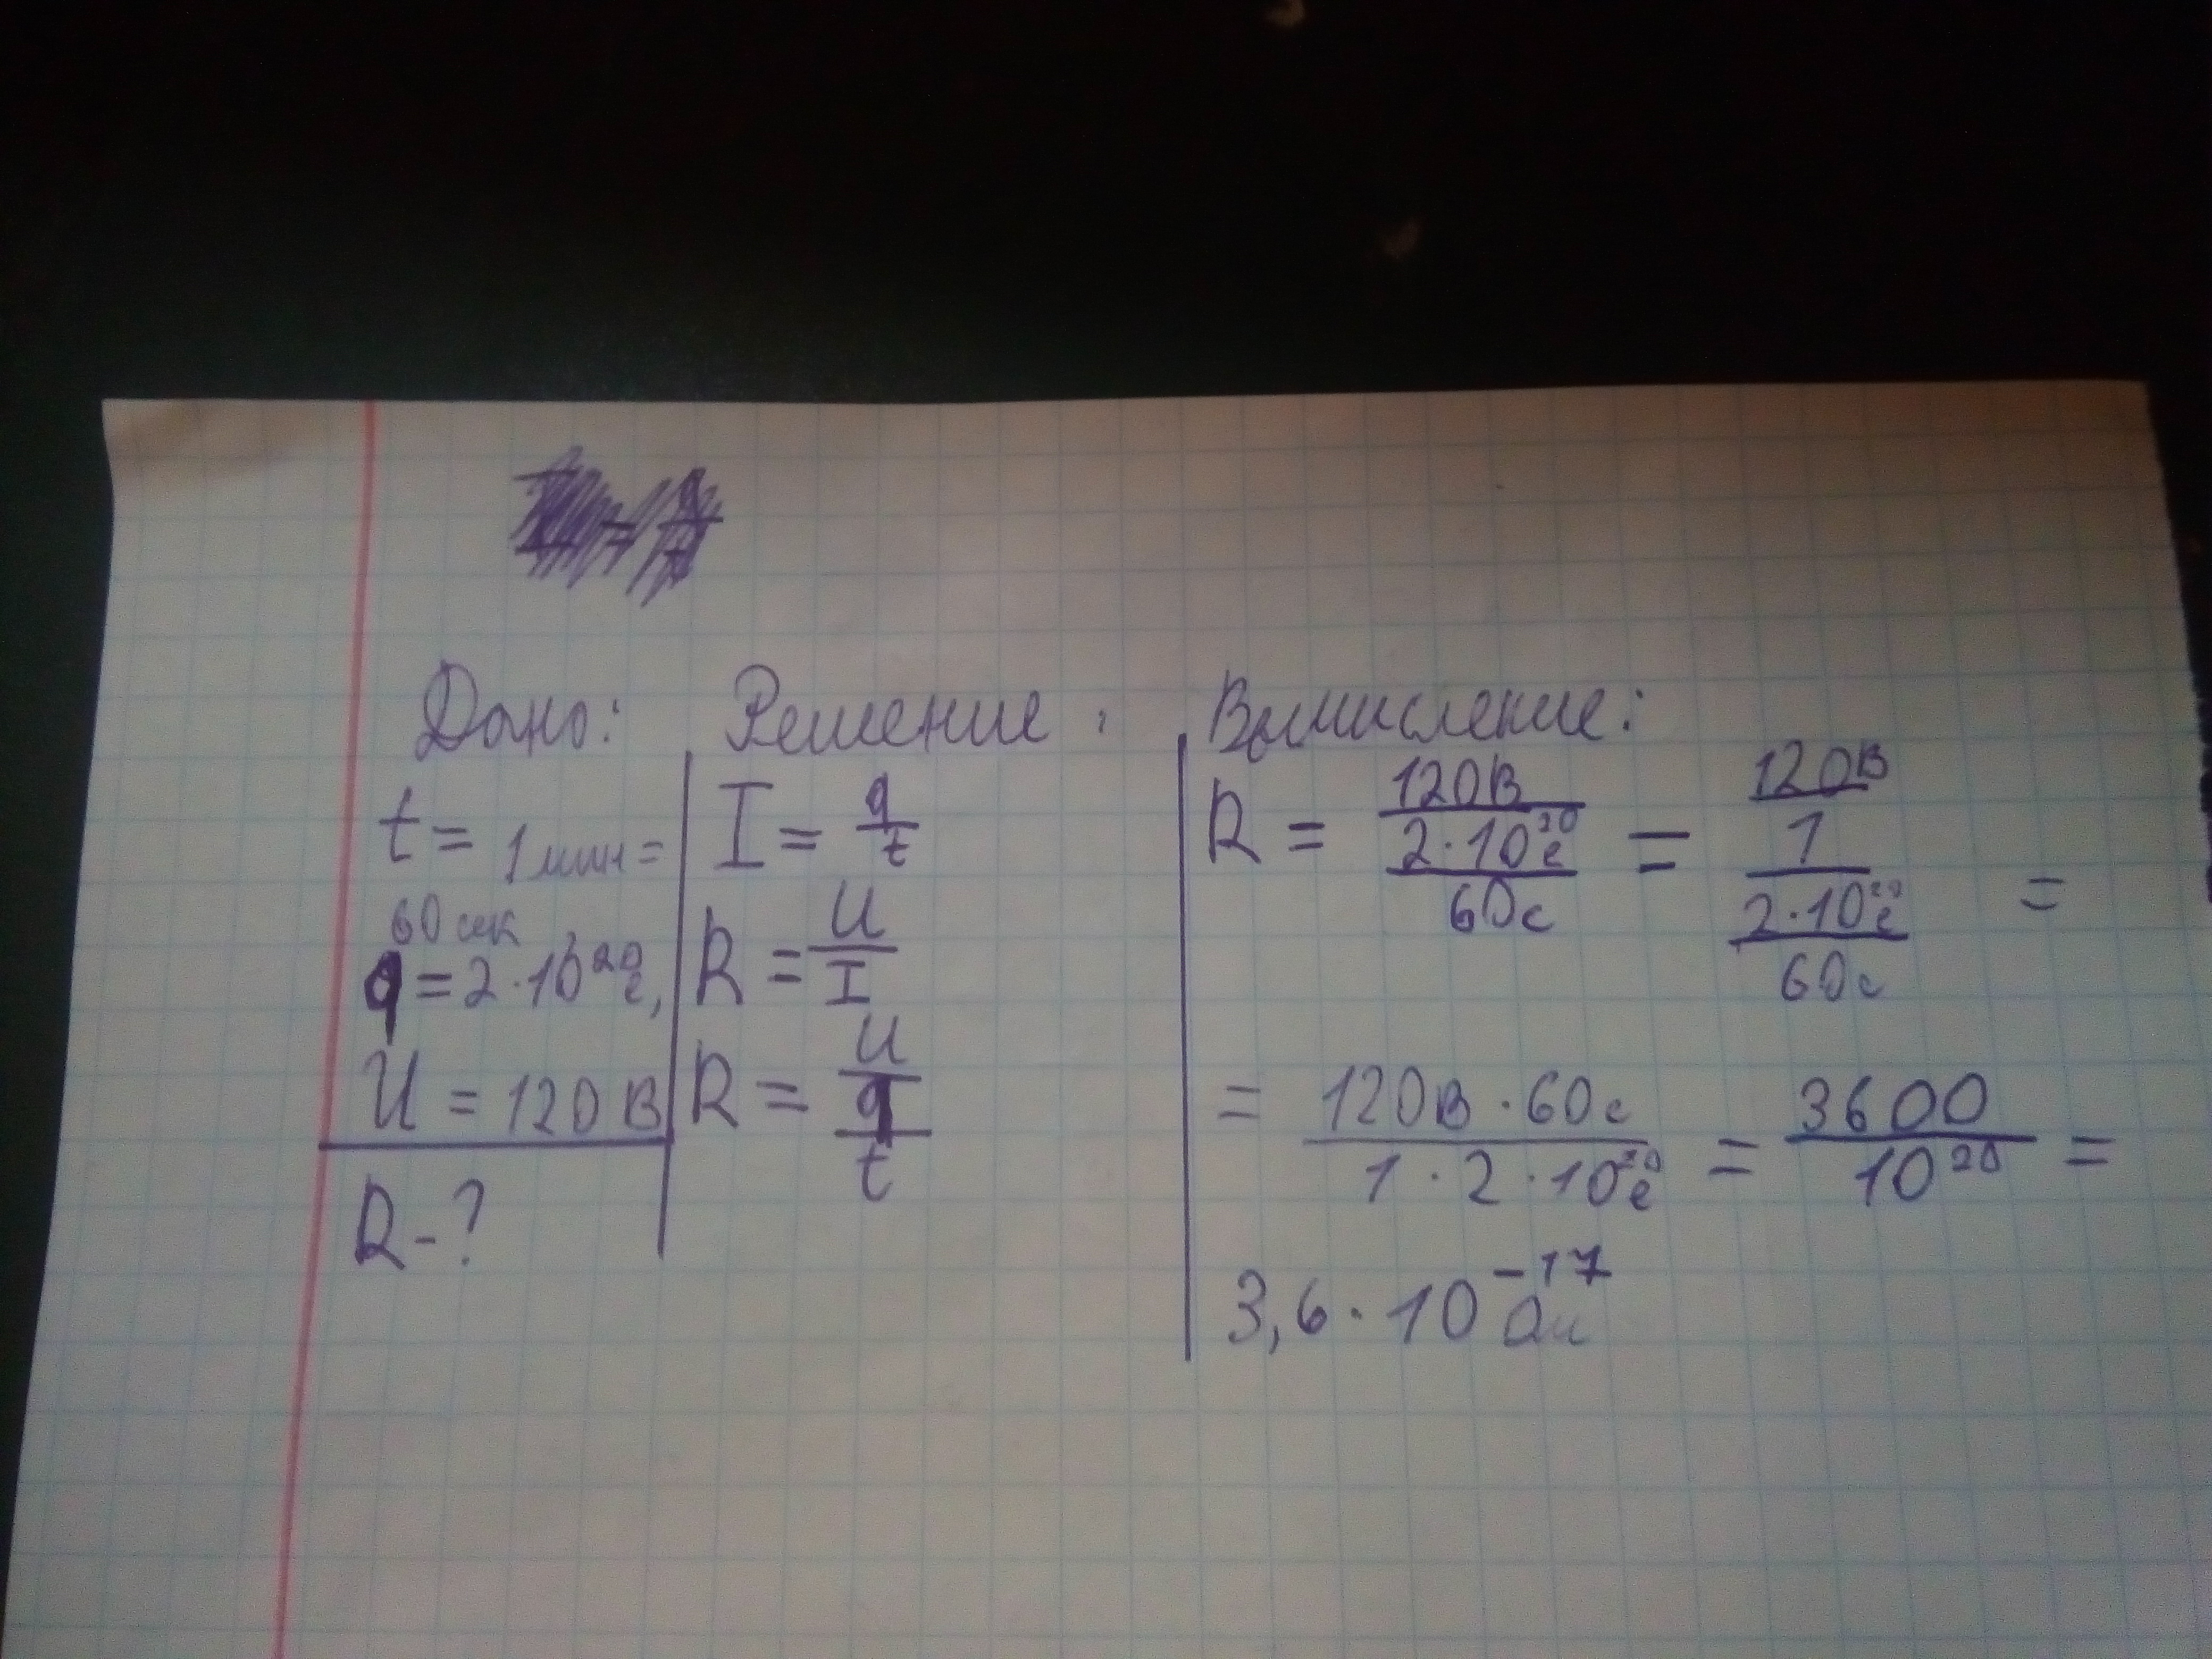 Дано:
t = 1 мин =
60 сек
q = 2 · 10²⁰ e,
U = 120 В
R - ?
Решение:
I = q/t
R = U/I
R = U/(q/t)
Вычисление:
R = 120В/(2·10²⁰e/60с) = 120В/1/(2·10²⁰e/60с) =
= 120В · 60с/(1 · 2 · 10²⁰e) = 3600/10²⁰ =
3,6 · 10⁻¹⁷ Ом